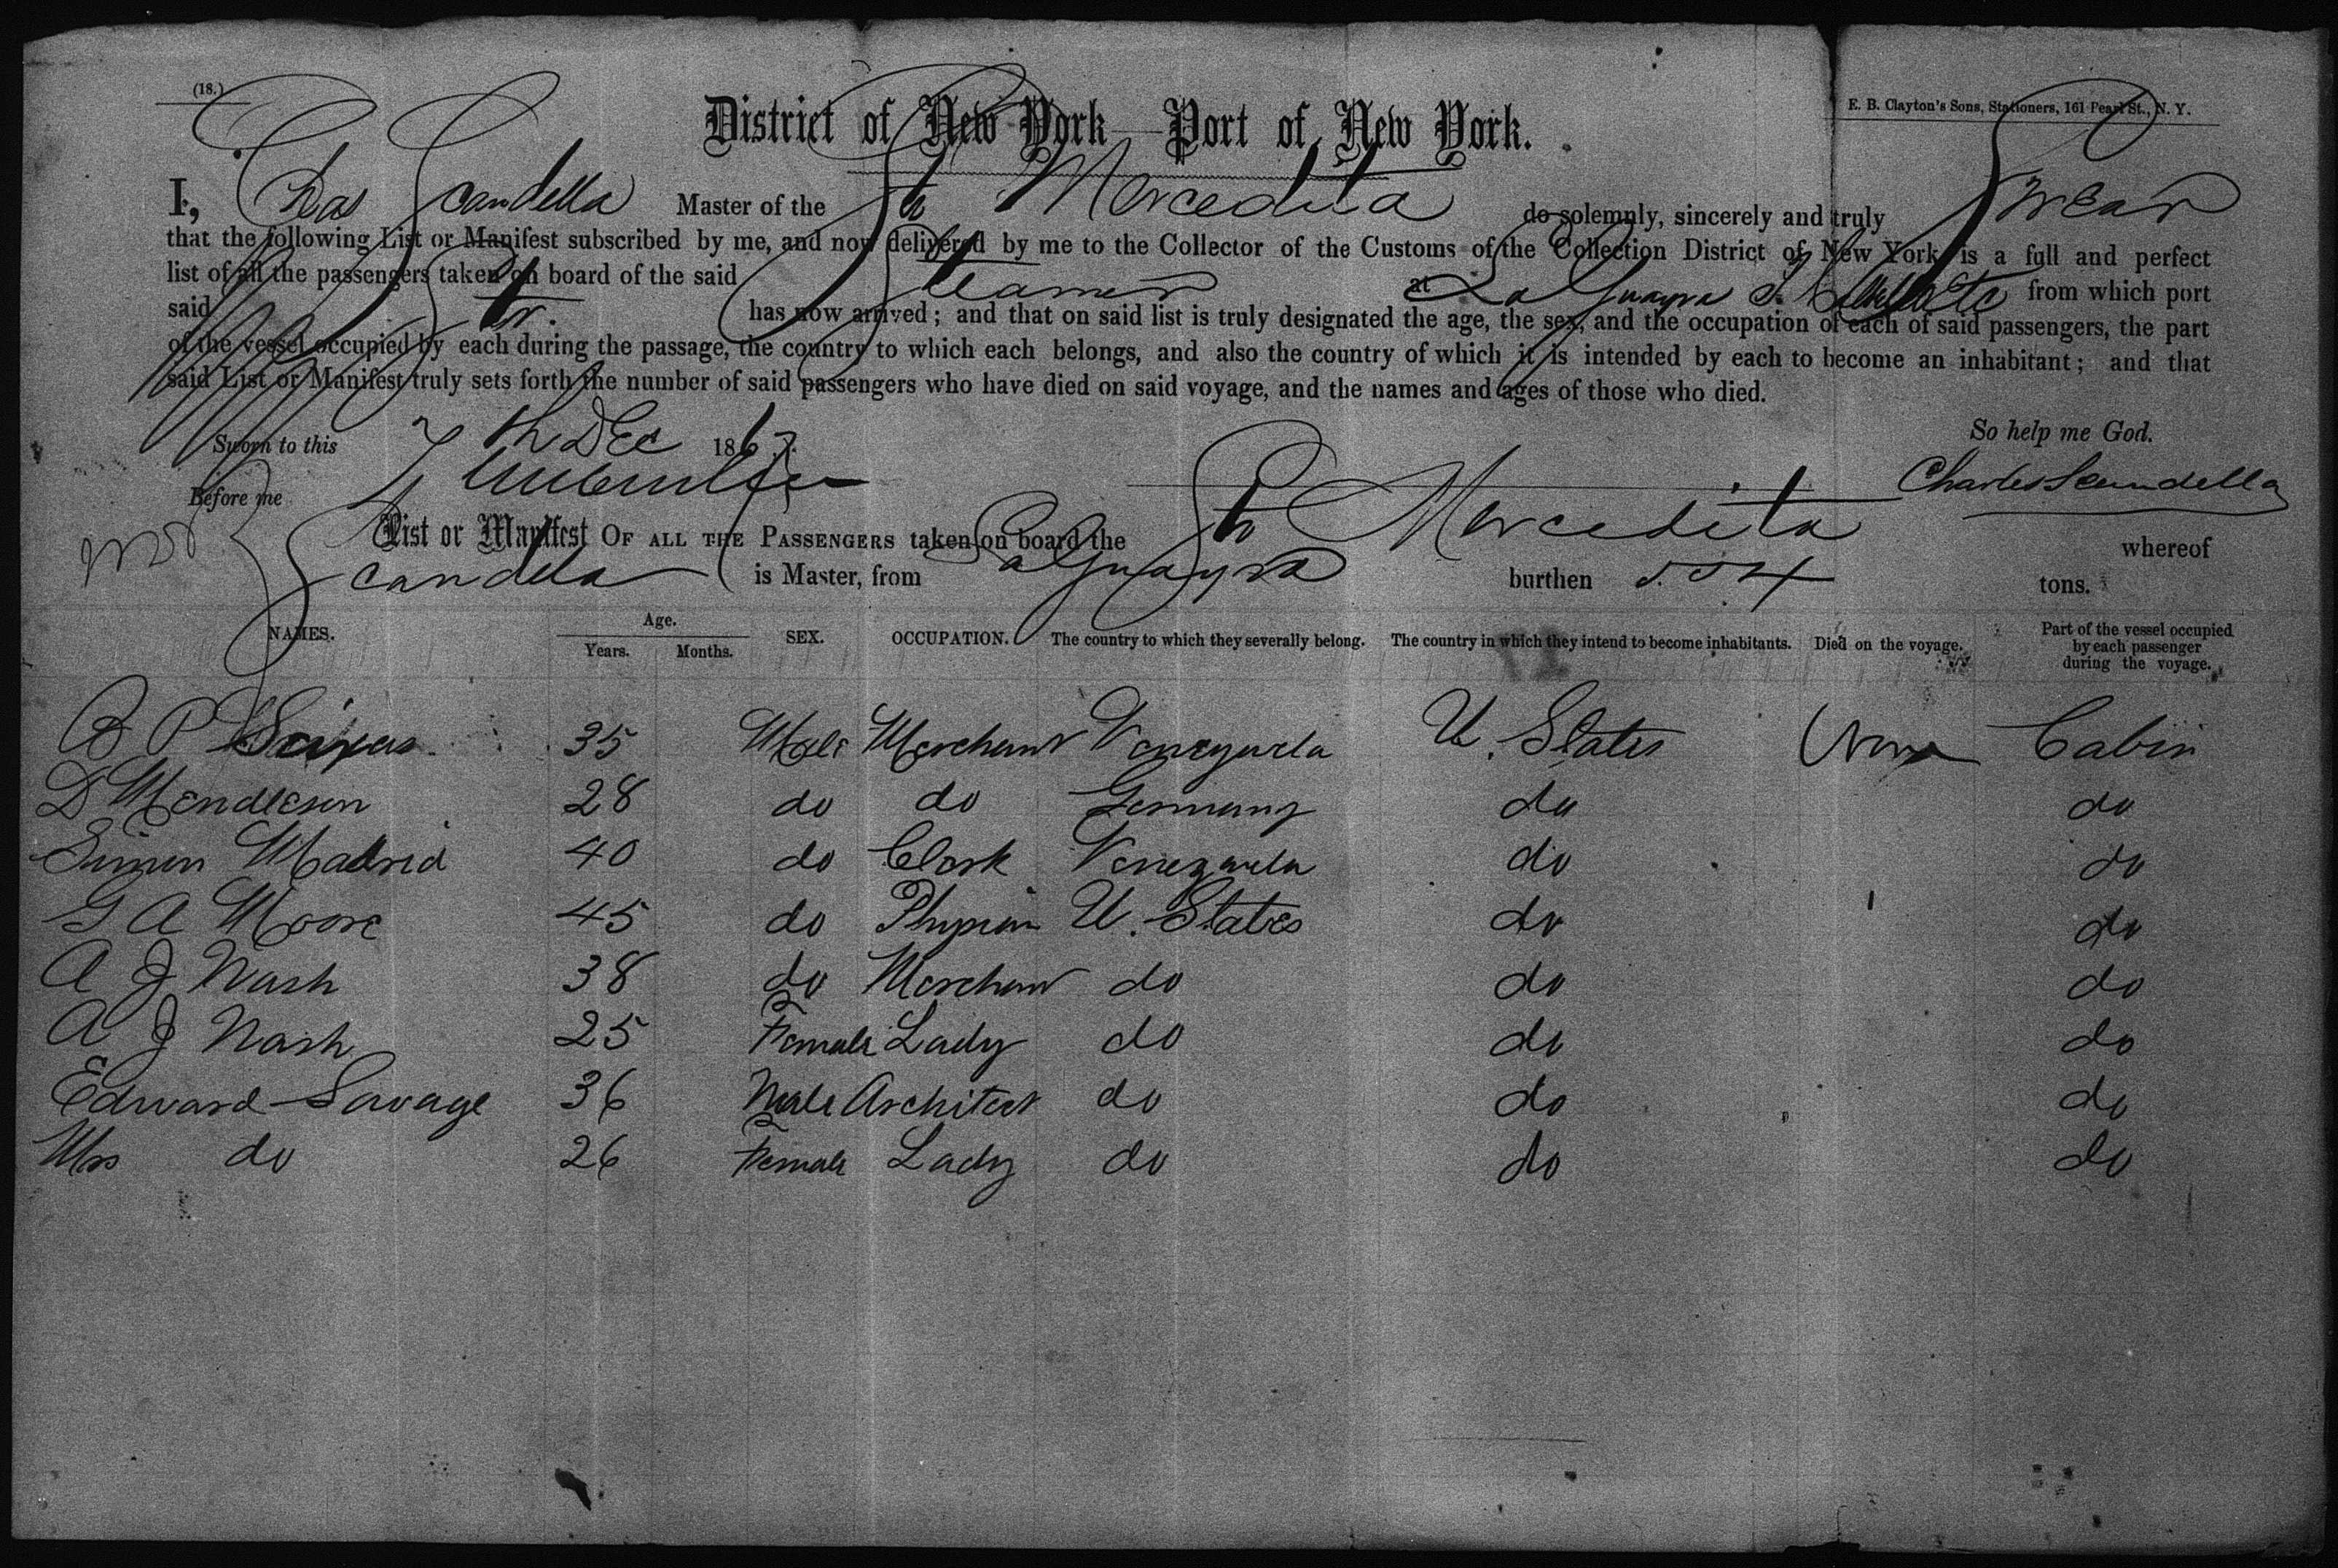 (18.)
E. B. Clayton's Sons, Stationers, 161 Pearl St., N. Y.
District of New York—Port of New York.
I, Chas Scandella Master of the Str Mercedita do solemnly, sincerely and truly Swear
that the following List or Manifest subscribed by me, and now delivered by me to the Collector of the Customs of the Collection District of New York, is a full and perfect
list of all the passengers taken on board of the said Steamer at La Guayra from which port
said Str. has now arrived; and that on said list is truly designated the age, the sex, and the occupation of each of said passengers, the part
of the vessel occupied by each during the passage, the country to which each belongs, and also the country of which it is intended by each to become an inhabitant; and that
said List or Manifest truly sets forth the number of said passengers who have died on said voyage, and the names and ages of those who died.
So help me God.
Sworn to this 7th Dec 1867.
Charles Scandella
Before me
List or Manifest OF ALL THE PASSENGERS taken on board the Str Mercedita whereof
Scandella is Master, from LaGuayra burthen 554 tons.
NAMES. Age. Years. Months. SEX. OCCUPATION. The country to which they severally belong. The country in which they intend to become inhabitants. Died on the voyage. Part of the vessel occupied by each passenger during the voyage.
B P Seixas 35 Male Merchant Venezuela U. States None Cabin
D Mendleson 28 do do Germany do do
Simon Madrid 40 do Clerk Venezuela do do
G A Moore 45 do U. States do do
A J Nash 38 do Merchant do do do
A J Nash 25 Female Lady do do do
Edward Savage 36 Male Architect do do do
Mrs do 26 Female Lady do do do